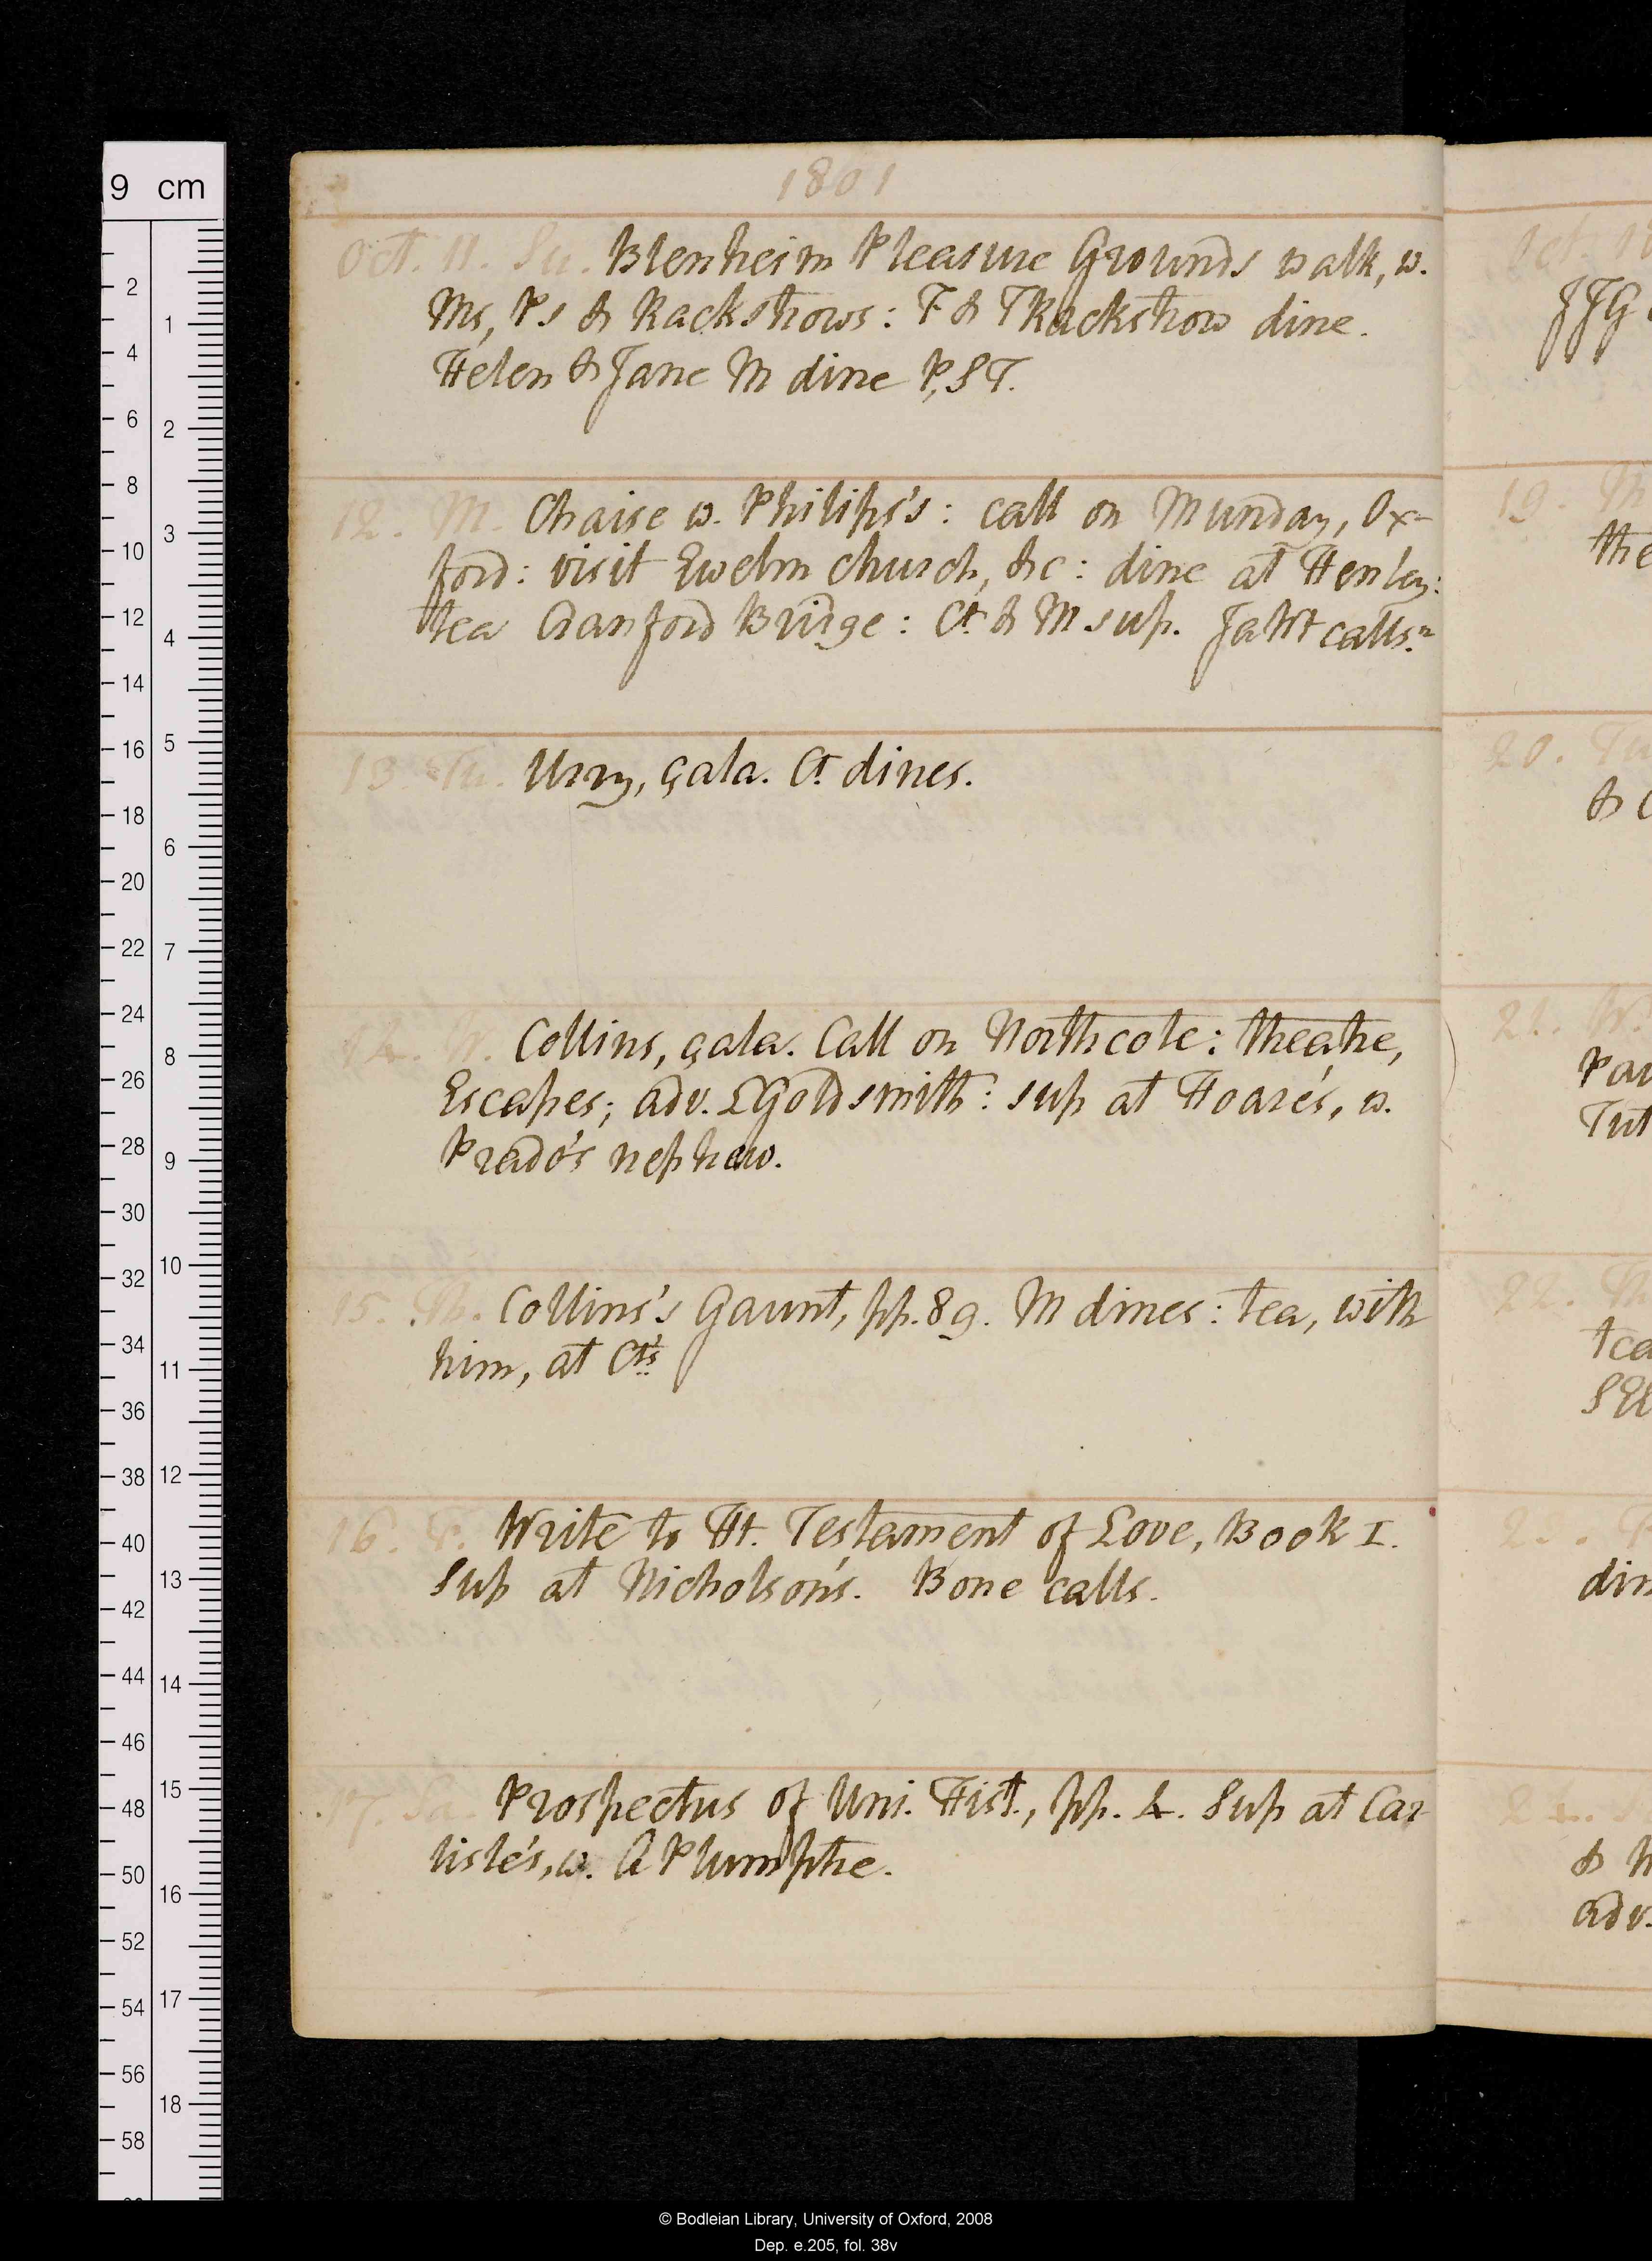 1801
Oct. 11. Su. Blenheim Pleasure Grounds walk, w.
Ms, Ps & Rackstrows: F & T Rackstrow dine.
Helen & Jane M dine P,ST.
12. M. Chaise w. Philips's: call on Munday, Ox-
ford: visit Ewelm church, &c: dine at Henley:
tea Cranford Bridge: Ct & M sup. calls.n
13. Tu. Urry, çala. Ct dines.
14. W. Collins, çala. Call on Northcote: theatre,
Escapes; adv. LGoldsmith: sup at Hoare's, w.
Prado's nephew.
15. Th. Collins's Gaunt, pp. 89. M dines: tea, with
him, at Ct's
16. F. Write to Ht. Testament of Love, Book I.
Sup at Nicholson's. Bone calls.
17. Sa. Prospectus of Uni. Hist., pp. 4. Sup at Car-
lisle's, w. A Plumptre.
Oct. 18
19. M
the
20. Tu
& C
21. W.
Tut
22. Th
tea
23. F
din
24. S
adv.
9 cm
2
4
6
8
10
12
14
16
18
20
22
24
26
28
30
32
34
36
38
40
42
44
46
48
50
52
54
56
58
1
2
3
4
5
6
7
8
9
10
11
12
13
14
15
16
17
18
© Bodleian Library, University of Oxford, 2008
Dep. e.205, fol. 38v